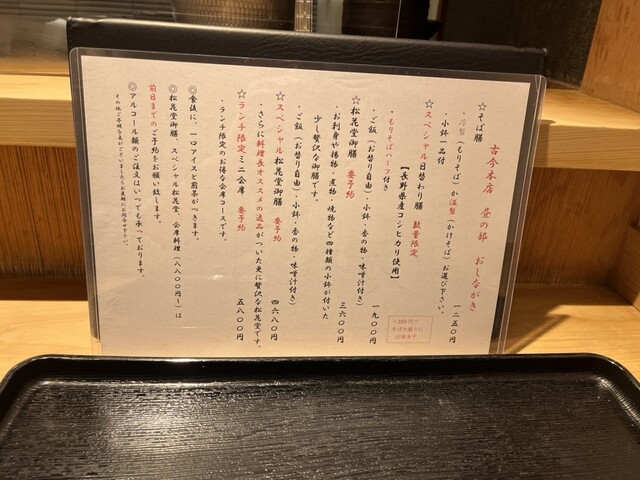 古今本店 昼の部 おしながき
☆そば膳 一二五〇円
・冷製(もりそば)か温製(かけそば)お選び下さい。
・小鉢一品付
☆スペシャル日替わり膳 数量限定 一九〇〇円
【長野県産コシヒカリ使用】
・もりそばハーフ付き
・ご飯(お替り自由)・小鉢・香の物・味噌汁付き)
☆松花堂御膳 要予約 三六〇〇円
・お刺身や揚物・煮物・焼物など四種類の小鉢が付いた
少し贅沢な御膳です。
・ご飯(お替り自由)・小鉢・香の物・味噌汁付き)
☆スペシャル松花堂御膳 要予約 四六八〇円
・さらに料理長オススメの逸品がついた更に贅沢な松花堂です。
☆ランチ限定ミニ会席 要予約 五八〇〇円
・ランチ限定のお得な会席コースです。
◎食後に、一口アイスと煎茶がつきます。
◎松花堂御膳、スペシャル松花堂、会席料理(八八〇〇円~)は
前日までのご予約をお願い致します。
◎アルコール類のご注文はいつでも承っております。
その他ご不明な点がございましたらお気軽にお問合せ下さい。
そば大盛りに
出来ます